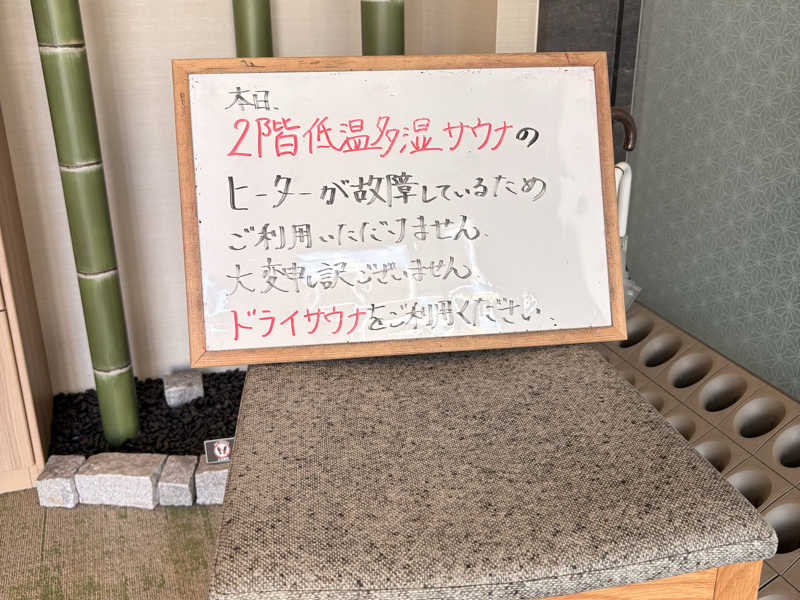 本日、
2階低温多湿サウナの
ヒーターが故障しているため
ご利用いただけません。
大変申し訳ございません。
ドライサウナをご利用ください。